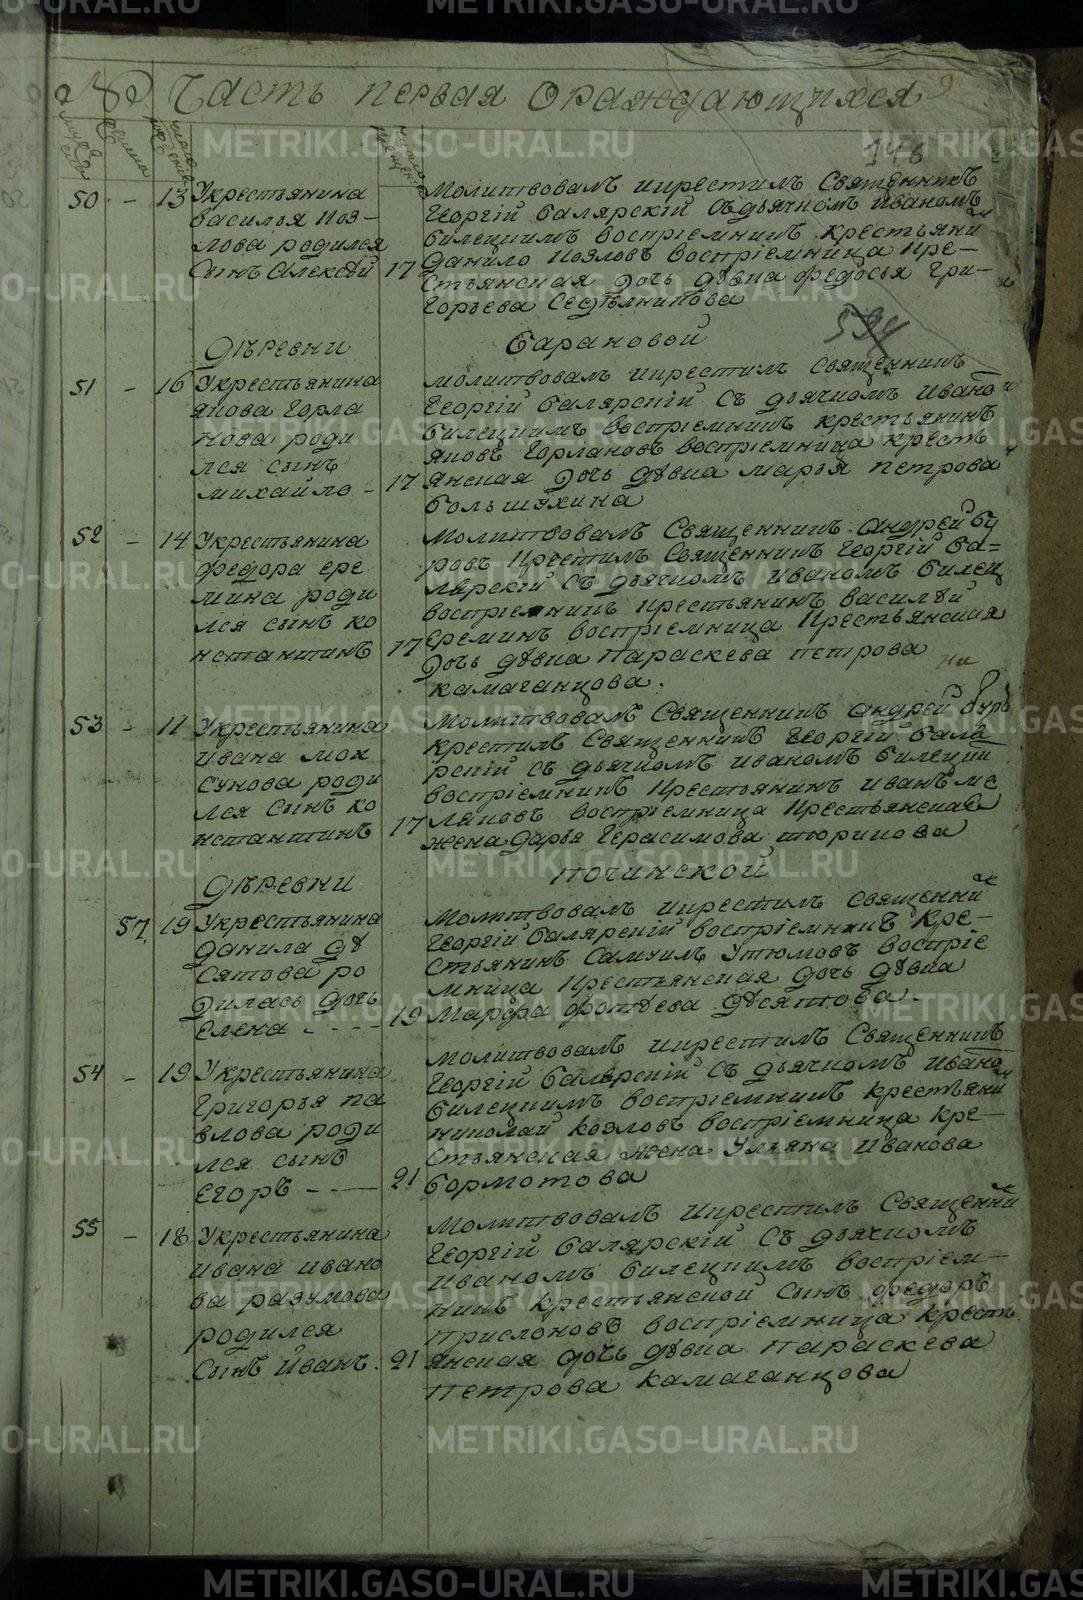 Часть первая ораждающихся
9
146
50 - 13 Укрестьянина
василья Коз-
лова родился
сынъ Алексѣй 17
Молитвовалъ икрестилъ Священникъ
Георгій балярскій съдьячкомъ иваномъ
билецкимъ воспріемникъ крестьяни
данило козловъ воспріемница кре-
стьянская дочь дѣвка федосья Гри-
горьева Седѣлникова
594
дѣревни барановой
51 - 16 Укрестьянина
якова Горла
нова роди
лся сынъ
михайло - 17
молитвовалъ икрестилъ Священникъ
Георгій балярскій съ дьячкомъ ивано
билецкимъ воспріемникъ крестьянинъ
яковъ Горлановъ воспріемница кресть
янская дочь дѣвка марья петрова
большухина
52 - 14 Укрестьянина
федора ере
мина роди
лся сынъ ко
нстантинъ 17
Молитвовалъ Священникъ андрей бу
ровъ крестилъ Священникъ Георгій ба=
лярскій съ дьячкомъ иваномъ билец
воспріемникъ крестьянинъ василѣй
ереминъ воспріемница крестьянская
дочь дѣвка Параскева петрова
камаганцова.
53 - 11 Укрестьянина
ивана мок
сунова роди
лся сынъ ко
нстантинъ 17
Молитвовалъ Священникъ андрей буръ
крестилъ Священникъ Георгій баля
рскій съ дьячкомъ иваномъ билецки
воспріемникъ крестьянинъ иванъ ме
ляковъ воспріемница крестьянская
жена дарья Герасимова тюрикова
дѣревни починской
57. 19 Укрестьянина
данила дѣ
сятова ро
дилась дочь
елена - - - - 19
Молитвовалъ икрестилъ священни
Георгій балярскій воспріемникъ кре-
стьянинъ Самуилъ Утюмовъ воспріе
мница крестьянская дочь дѣвка
Марфа фотѣева дѣсятова.
54 - 19 Укрестьянина
Григорья па
влова роди
лся сынъ
егоръ - - - 21
Молитвовалъ икрестилъ Священникъ
Георгій балярскій съ дьячкомъ ивано
билецкимъ воспріемникъ крестьяни
николай козловъ воспріемница кре-
стьянская жена Ульяна иванова
бормотова
55 - 18 Укрестьянина
ивана ивано
ва разумова
родился
сынъ иванъ. 21
Молитвовалъ икрестилъ Священни
Георгій балярскій съ дьячкомъ
иваномъ билецкимъ воспріем-
никъ крестьянской сынъ федоръ
прислоновъ воспріемница кресть
янская дочь дѣвка параскева
петрова камаганцова
METRIKI.GASO-URAL.RU